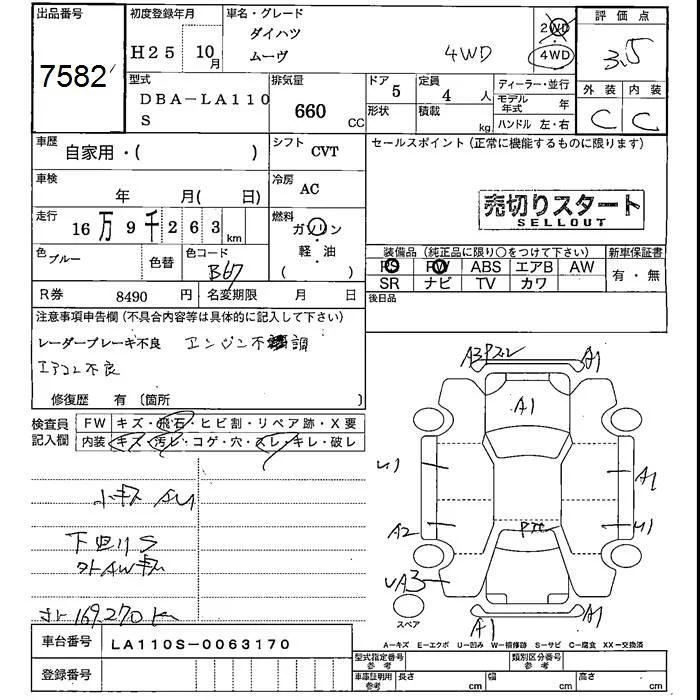 出品番号 初度登録年月 車名・グレード 評価点
7582 H25 10月 ダイハツ 2WD
ムーヴ 4WD 4WD 3.5
型式 排気量 ドア 定員 ディーラー・並行 外装 内装
DBA-LA110 660 CC 5 4人 モデル年式 年 C C
S 形状 積載 kg ハンドル 左・右
車歴 自家用・( ) シフト CVT セールスポイント(正常に機能するものに限ります)
車検 年 月( 日) 冷房 AC
売切りスタート
SELLOUT
走行 16万9千263km 燃料 ガソリン
軽・油
( )
色 ブルー 色替 色コード B67
装備品(純正品に限り○をつけて下さい) 新車保証書
PS PW ABS エアB AW 有・無
SR ナビ TV カワ
R券 8490円 名変期限 月 日 後日品
注意事項申告欄(不具合内容等は具体的に記入して下さい)
レーダーブレーキ不良 エンジン不調
エアコン不良
修復歴 有(箇所 )
検査員記入欄 FW キズ・飛石・ヒビ割・リペア跡・X要
内装 キズ・汚レ・コゲ・穴・スレ・キレ・破レ
小キズ AU
下回りS
外AWキズ
169,270km
A3 A1
A1
U1 A1
A2 U1
UA3
スペア
A1 A1
A-キズ E-エクボ U-凹み W-補修跡 S-サビ C-腐食 XX-交換済
車台番号 LA110S-0063170
型式指定番号 参考 類別区分番号 参考
登録番号 車庫証明用 参考 長さ cm 幅 cm 高さ cm